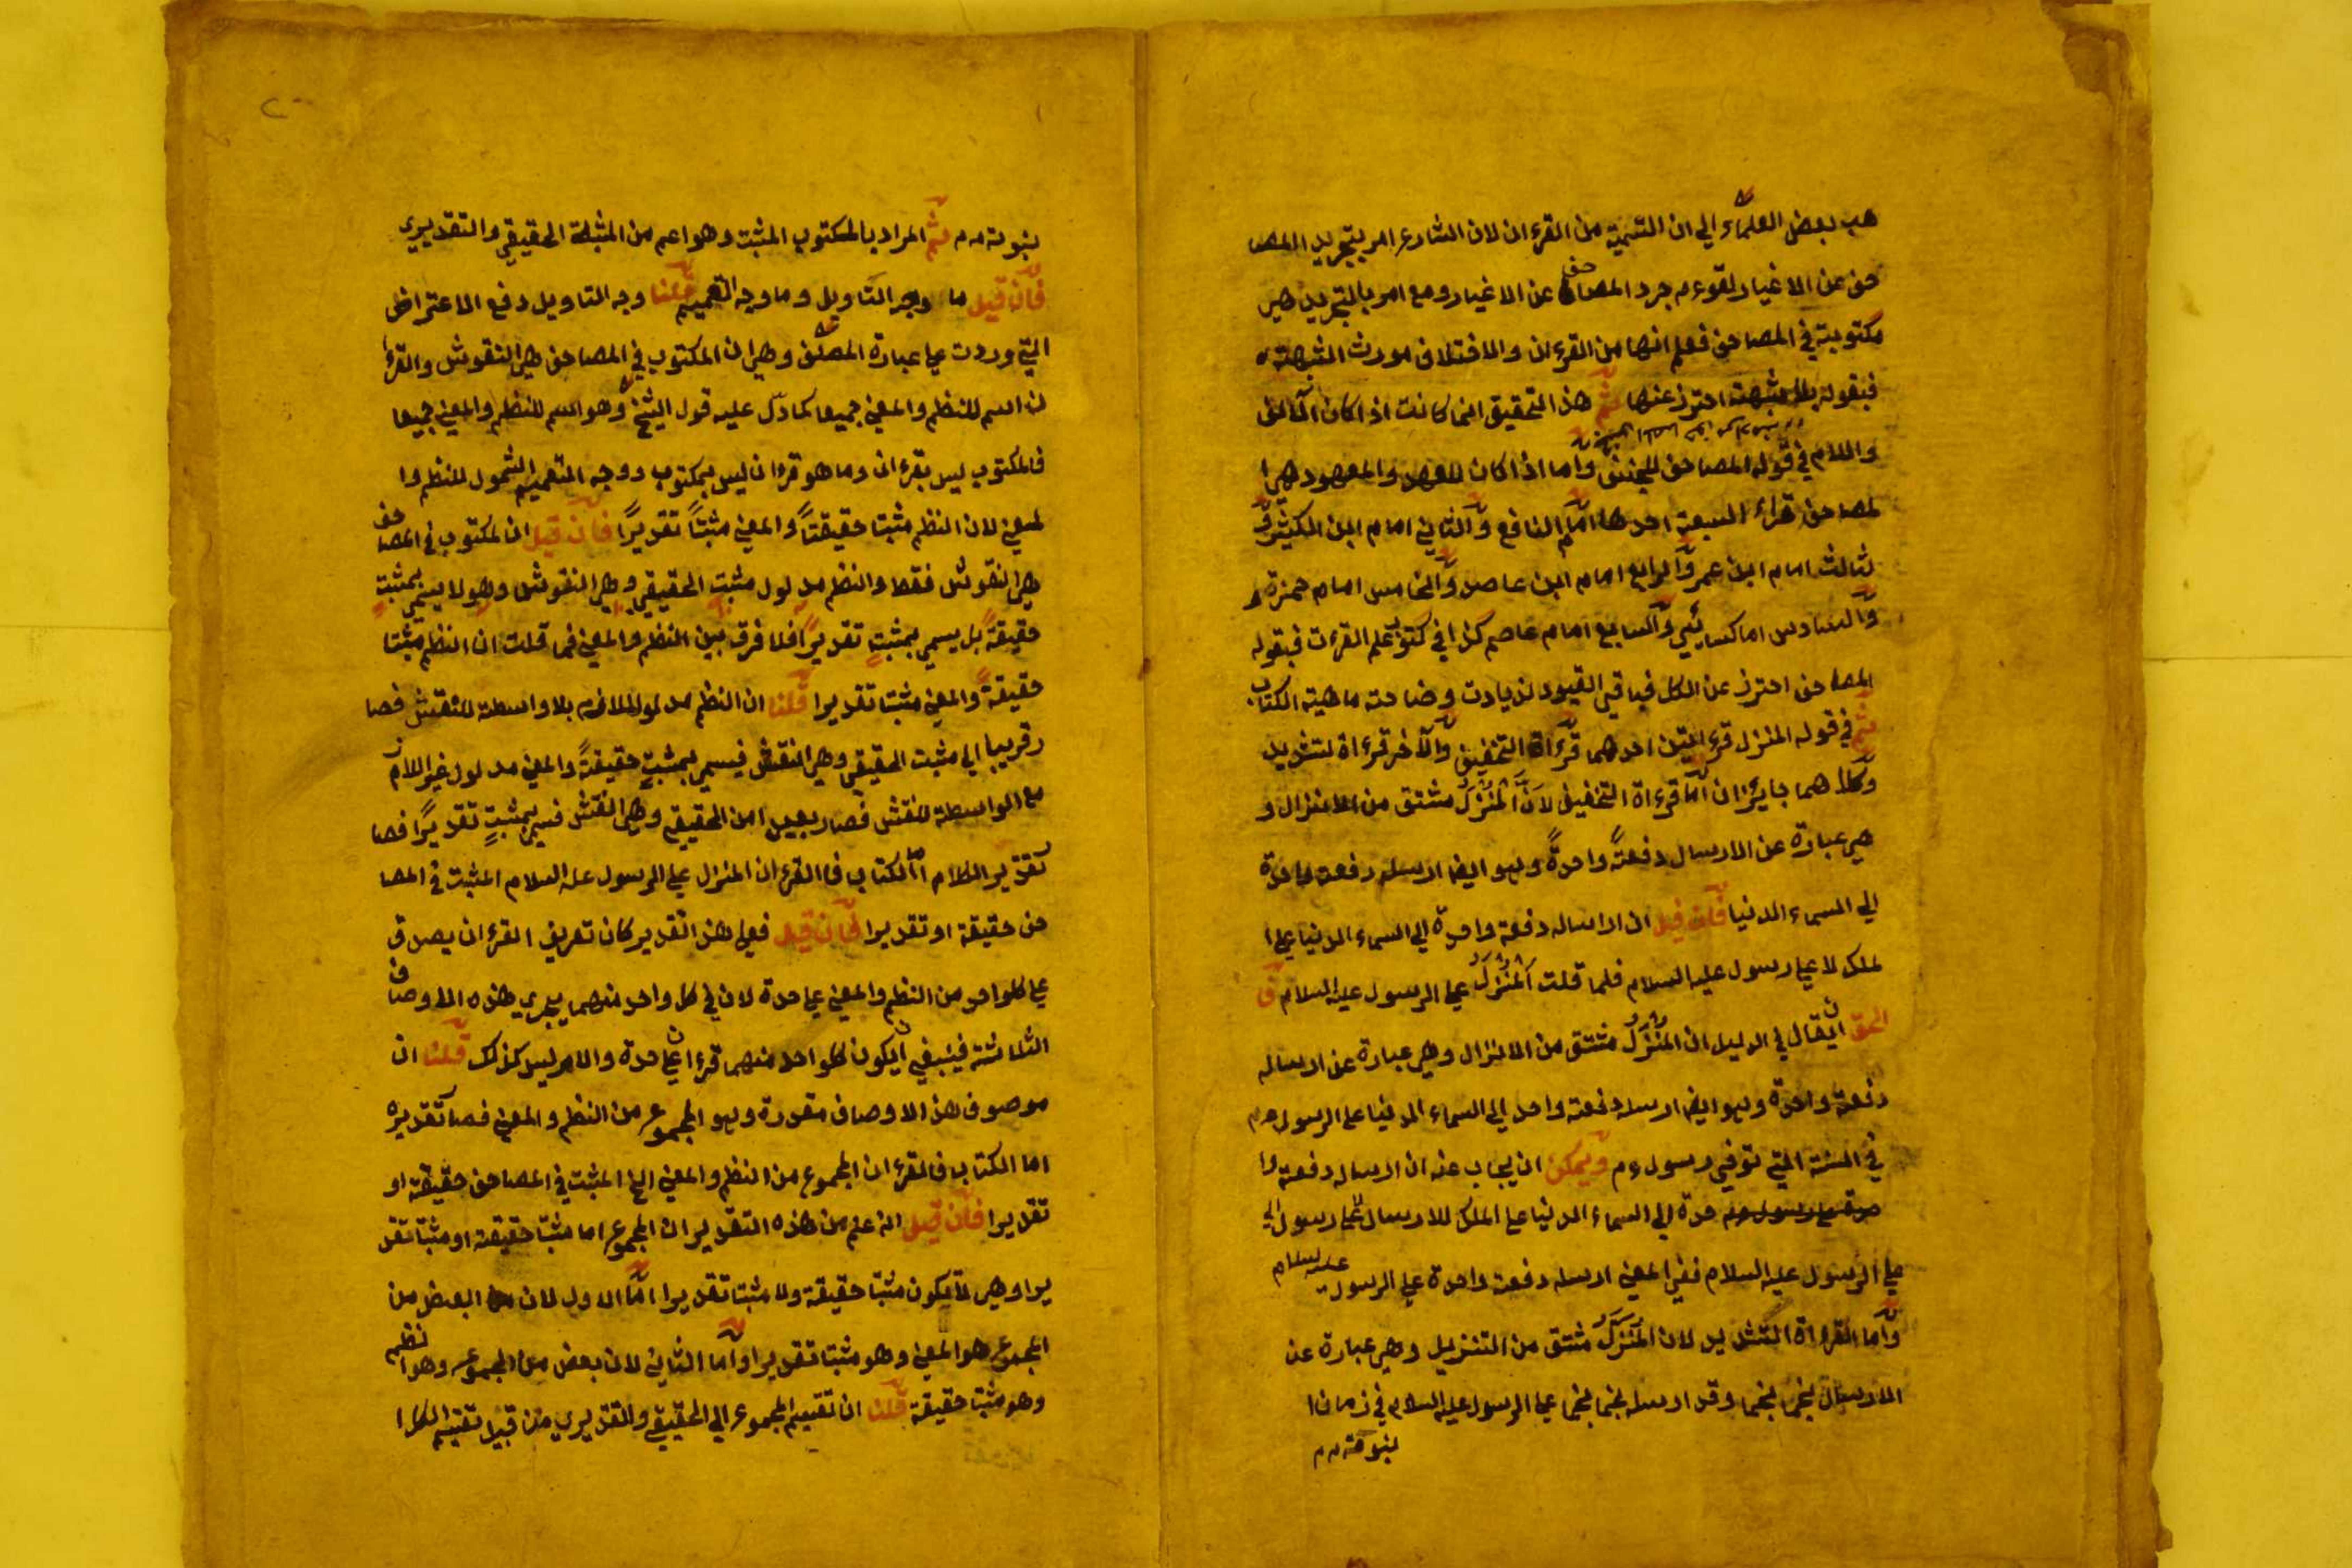 هب بعض العلماء الي ان التسمية من القرءان لان الشارع امر بتجريد المصا
حف عن الاغيار لقوءم جرد المصاحف عن الاغيار ومع امر بالتجريد هي
مكتوبة في المصاحف فعلم انها من القرءان والاختلاف مورث الشبهة
فبقوله بلا شبهة احترز عنها ثم هذا التحقيق انما كانت اذا كان الالف
واللام في قوله المصاحف للجنس واما اذا كان للعهد والمعهود هي ا
لمصاحف قراء السبعة احدها امام النافع والثاني امام ابن الكثير وا
لثالث امام ابن عمر والرابع امام ابن عاصر والخامس امام حمزة
والسادس اما كسايئي والسابع امام عاصم كذا في كتوب علم القرءت فبقوله
المصاحف احترز عن الكل فباقي القيود لزيادت وضاحة ماهية الكتاب
ثم في قوله المنزل قرءاتين احدهما قرءاة التخفيف والآخر قرءاة لتشديد
وكلا هما جايزان اما قرءاة التخفيف لان المنزل مشتق من الانزال و
هي عبارة عن الارسال دفعة واحدة وهو ايضا ارسله دفعة واحدة
الي السماء الدنيا فان قيل ان ارساله دفعة واحدة الي السماء الدنيا علي ا
لملك لا علي رسول عليه السلام فلما قلت المنزل علي الرسول عليه السلام ق
الحق ان يقال في الدليل ان المنزل مشتق من الانزال وهي عبارة عن ارساله
دفعة واحدة وهو ايضا ارسله دفعة واحد الي السماء الدنيا علي الرسول عم
في السنة التي توفي رسول ءم ويمكن ان يجاب عنه ان ارساله دفعة وا
حدة الي السماء الدنيا علي الملك للارسال علي رسول الي
علي الرسول عليه السلام ففي المعني ارسله دفعة واحدة علي الرسول عليه سلام
واما القرءاة التشديد لان المنزل مشتق من التنزيل وهي عبارة عن
الارسال نجما نجما وقد ارسله نجما نجما علي الرسول عليه السلام في زمان ا
لنبوته ءم
لنبوته ءم ثم المراد بالمكتوب المثبت وهو اعم من المثبة الحقيقي والتقديري
فان قيل ما وجه التاويل وما وجه التعميم قلنا وجه التاويل دفع الاعتراض
التي وردت علي عبارة المصنف وهي ان المكتوب في المصاحف هي النقوش والقرءا
ن اسم للنظم والمعني جميعا كما دل عليه قول الشيخ وهو اسم للنظم والمعني جميعا
فالمكتوب ليس بقرءان وما هو قرءان ليس بمكتوب ووجه التعميم الشمول للنظم وا
لمعني لان النظم مثبتا حقيقتا والمعني مثبتا تقديرا فان قيل ان المكتوب في المصاحف
هي النقوش فقط والنظم مدلول مثبت الحقيقي وهي النقوش وهو لا يسمي بمثبت
حقيقة بل يسمي بمثبت تقديرا فلا فرق بين النظم والمعني فما قلت ان النظم مثبتا
حقيقة والمعني مثبتا تقديرا قلنا ان النظم مدلول اللازم بلا واسطة للنقش فصا
ر قريبا الي مثبت الحقيقي وهي النقش فيسمي بمثبت حقيقة والمعني مدلول غير اللازم
مع الواسطة للنقش فصار بعيدا من الحقيقي وهي النقش فيسمي بمثبت تقديرا فصا
ر تقدير الكلام اما الكتاب فالقرءان المنزل علي الرسول عليه السلام المثبت في المصا
حف حقيقة او تقديرا فان قيل فعلي هذا التقدير كان تعريف القرءان يصدق
علي كلواحد من النظم والمعني علي حدة لان في كل واحد منهما يجري هذه الاوصاف
الثلاثة فينبغي ان يكون كلواحد منهما قرءانا علي حدة والامر ليس كذلك قلنا ان
موصوف هذا الاوصاف مقدرة وهو المجموع من النظم والمعني فصار تقديره
اما الكتاب فالقرءان المجموع من النظم والمعني الخ المثبت في المصاحف حقيقة او
تقديرا فان قيل انه علم من هذه التقدير ان المجموع اما مثبتا حقيقة او مثبتا تقد
يرا وهي لا يكون مثبتا حقيقة ولا مثبتا تقديرا اما الاول لان البعض من
المجموع هو المعني وهو مثبتا تقديرا واما الثاني لان بعض من المجموع وهو النظم
وهو مثبتا حقيقة قلنا ان تقسيم المجموع الي الحقيقي والتقديري من قبيل تقسيم الكل ا